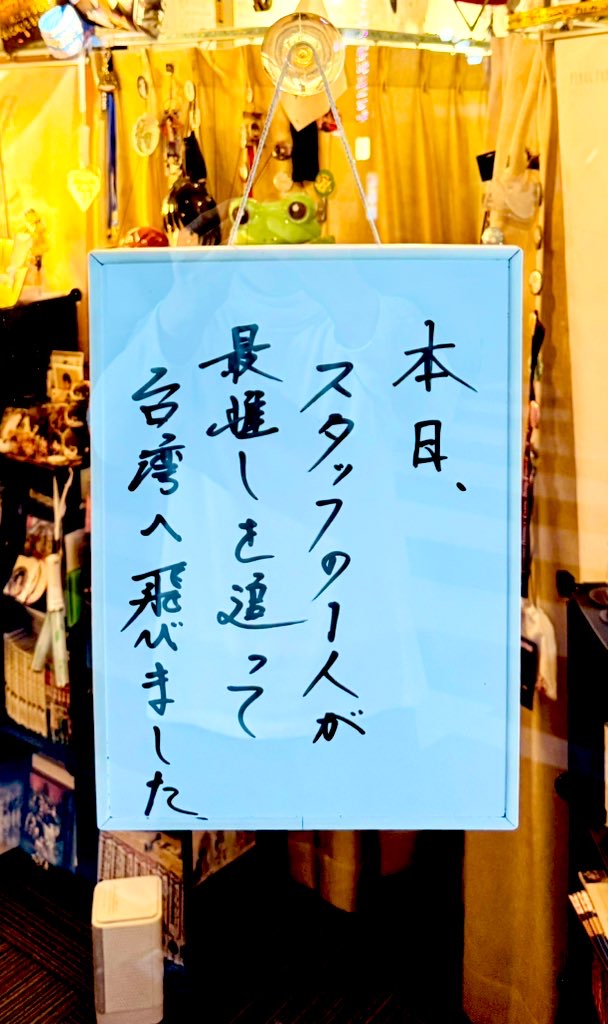 本日、
スタッフの1人が
最推しを追って
台湾へ飛びました、